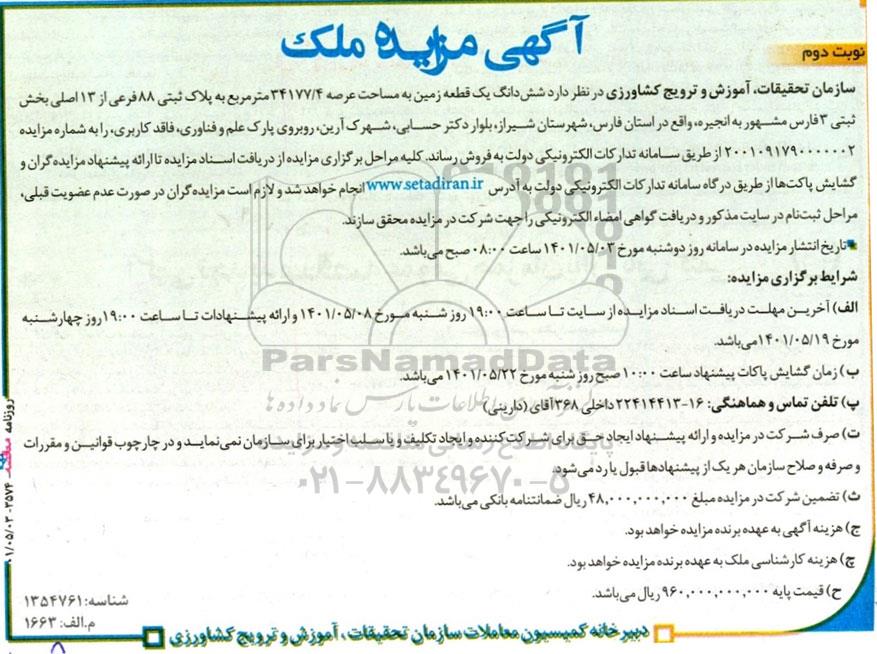 آگهی مزایده ملک
نوبت دوم
سازمان تحقیقات، آموزش و ترویج کشاورزی در نظر دارد شش‌دانگ یک قطعه زمین به مساحت عرصه ۳۴۱۷۷/۴ مترمربع به پلاک ثبتی ۸۸ فرعی از ۱۳ اصلی بخش
ثبتی ۳ فارس مشهور به انجیره، واقع در استان فارس، شهرستان شیراز، بلوار دکتر حسابی، شهرک آرین، روبروی پارک علم و فناوری، فاقد کاربری، را به شماره مزایده
۲۰۰۱۰۹۱۷۹۰۰۰۰۰۰۲ از طریق سامانه تدارکات الکترونیکی دولت به فروش رساند. کلیه مراحل برگزاری مزایده از دریافت اسناد مزایده تا ارائه پیشنهاد مزایده‌گران و
گشایش پاکت‌ها از طریق درگاه سامانه تدارکات الکترونیکی دولت به آدرس www.setadiran.ir انجام خواهد شد و لازم است مزایده‌گران در صورت عدم عضویت قبلی،
مراحل ثبت‌نام در سایت مذکور و دریافت گواهی امضاء الکترونیکی را جهت شرکت در مزایده محقق سازند.
تاریخ انتشار مزایده در سامانه روز دوشنبه مورخ ۱۴۰۱/۰۵/۰۳ ساعت ۰۸:۰۰ صبح می‌باشد.
شرایط برگزاری مزایده:
الف) آخرین مهلت دریافت اسناد مزایده از سایت تا ساعت ۱۹:۰۰ روز شنبه مورخ ۱۴۰۱/۰۵/۰۸ و ارائه پیشنهادات تا ساعت ۱۹:۰۰ روز چهارشنبه
مورخ ۱۴۰۱/۰۵/۱۹ می‌باشد.
ParsNamadData
ب) زمان گشایش پاکات پیشنهاد ساعت ۱۰:۰۰ صبح روز شنبه مورخ ۱۴۰۱/۰۵/۲۲ می‌باشد.
پ) تلفن تماس و هماهنگی: ۱۶-۲۲۴۱۴۴۱۳ داخلی ۳۶۸ آقای (دارینی)
ت) صرف شرکت در مزایده و ارائه پیشنهاد ایجاد حق برای شرکت‌کننده و ایجاد تکلیف و یا سلب اختیار برای سازمان نمی‌نماید و در چارچوب قوانین و مقررات
و صرفه و صلاح سازمان هر یک از پیشنهادها قبول یا رد می‌شود.
۰۲۱-۸۸۳۴۹۶۷۰-۵
ث) تضمین شرکت در مزایده مبلغ ۴۸,۰۰۰,۰۰۰,۰۰۰ ریال ضمانتنامه بانکی می‌باشد.
ج) هزینه آگهی به عهده برنده مزایده خواهد بود.
چ) هزینه کارشناسی ملک به عهده برنده مزایده خواهد بود.
ح) قیمت پایه ۹۶۰,۰۰۰,۰۰۰,۰۰۰ ریال می‌باشد.
شناسه: ۱۳۵۴۷۶۱
م.الف: ۱۶۶۳
دبیرخانه کمیسیون معاملات سازمان تحقیقات، آموزش و ترویج کشاورزی